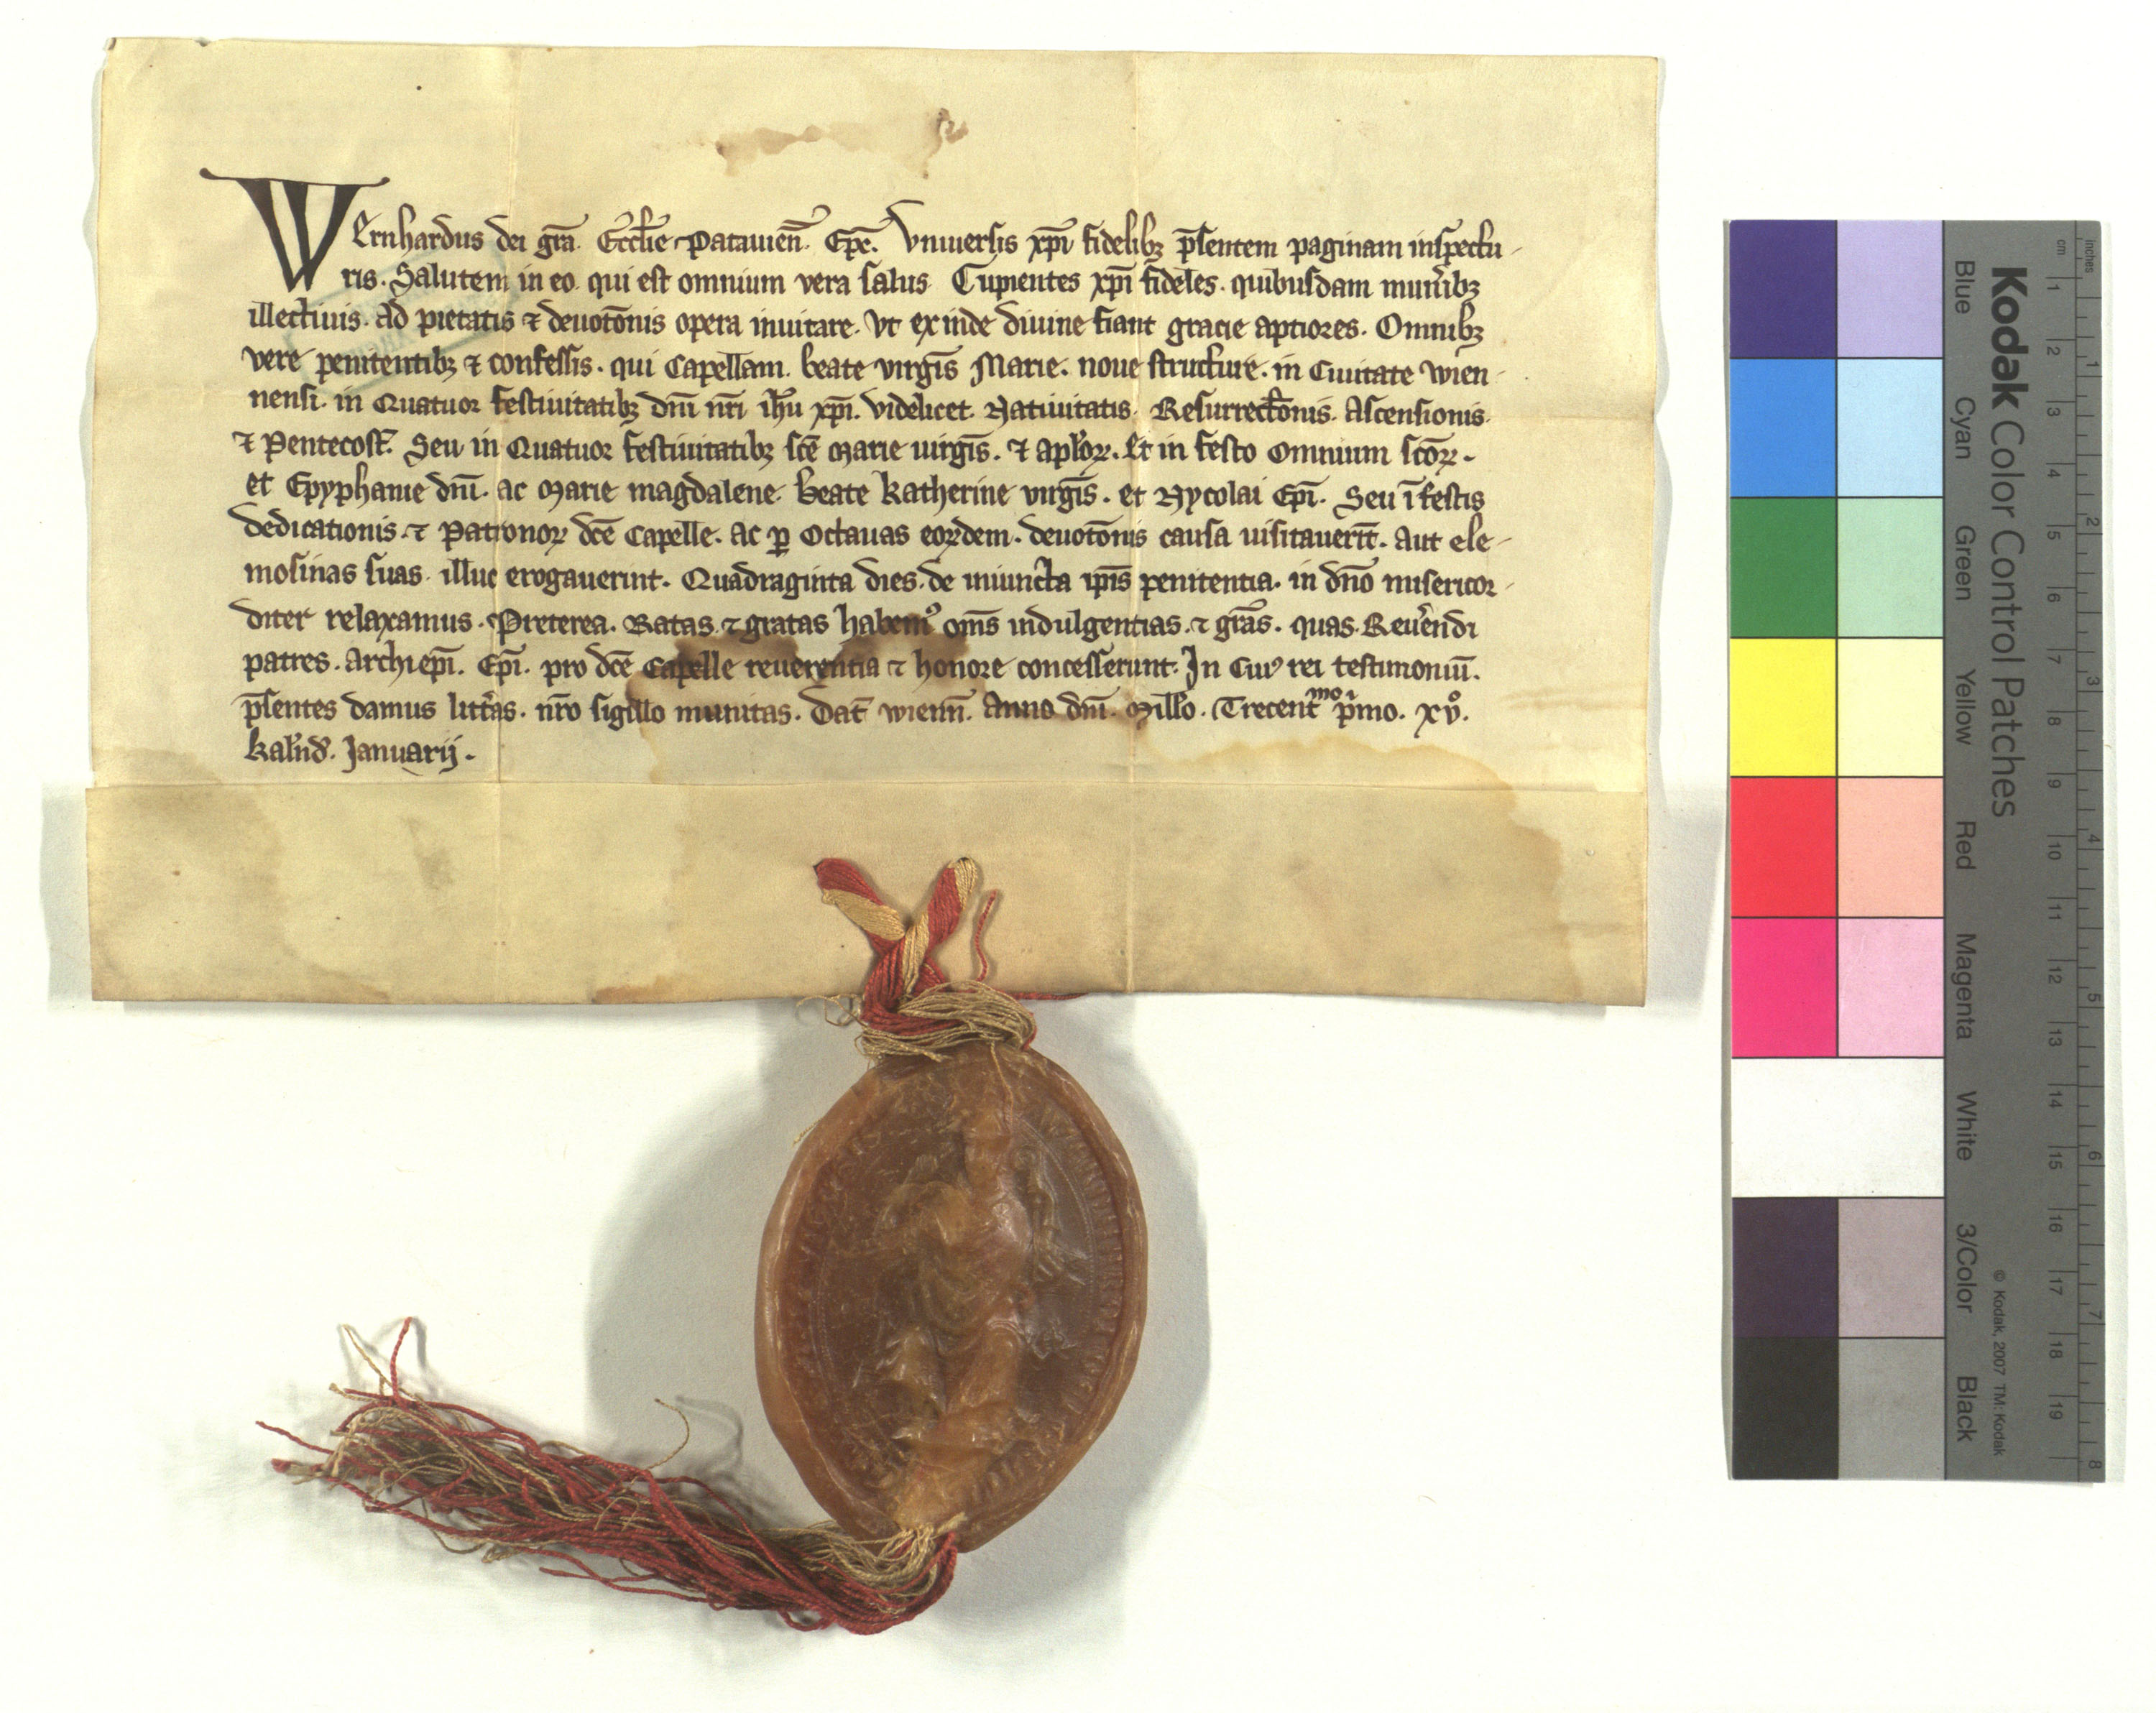 Wernhardus dei gr̄a. Eccl̄ie Patauien̄. Ep̄c. Vniuersis xp̄i fidelibꝫ p̄sentem paginam inspectu-
ris. Salutem in eo. qui est omnium vera salus. Cupientes xp̄i fideles. quibusdam mun̄ibꝫ
illectiuis. ad pietatis ⁊ deuotōnis opera inuitare. vt ex inde diuine fiant gracie aptiores. Omnibꝫ
vere penitentibꝫ ⁊ confessis. qui Capellam. beate virgīs Marie. noue structure. in Ciuitate wien-
nensi. in Quatuor festiuitatibꝫ dn̄i nr̄i ih̄u xp̄i. videlicet Natiuitatis. Resurrectōnis. Ascensionis.
⁊ Pentecost̄. Seu in Quatuor festiuitatibꝫ sc̄e Marie uirgīs. ⁊ apl̄oꝝ. Et in festo Omnium sc̄oꝝ.
et Epyphanie dn̄i. ac Marie magdalene. beate katherine virgīs. et Nycolai Ep̄i. Seu ī festis
dedicationis. ⁊ Patronoꝝ dc̄e Capelle. ac ꝑ Octauas eoꝝdem. deuotōnis causa uisitauerīt. aut ele-
mosinas suas. illuc erogauerint. Quadraginta dies. de iniuncta ip̄is penitentia. in dn̄o misericor-
diter relaxamus. Preterea. Ratas ⁊ gratas habemꝰ om̄s indulgentias. ⁊ gr̄as. quas Reu̾endi
patres. archiep̄i. Ep̄i. pro dc̄e Capelle reuerentia ⁊ honore concesserunt. In Cuiꝰ rei testimoniū.
p̄sentes damus litt̾as. nr̄o sigillo munitas. Dat̄ wienn̄. Anno dn̄i. Mill̄o. Trecentᵐᵒ p̄mo. xvͦ.
kal̄nd̄. Januarij.
Kodak Color Control Patches
Blue Cyan Green Yellow Red Magenta White 3/Color Black
© Kodak, 2007 TM: Kodak
cm 1 2 3 4 5 6 7 8 9 10 11 12 13 14 15 16 17 18 19
inches 1 2 3 4 5 6 7 8